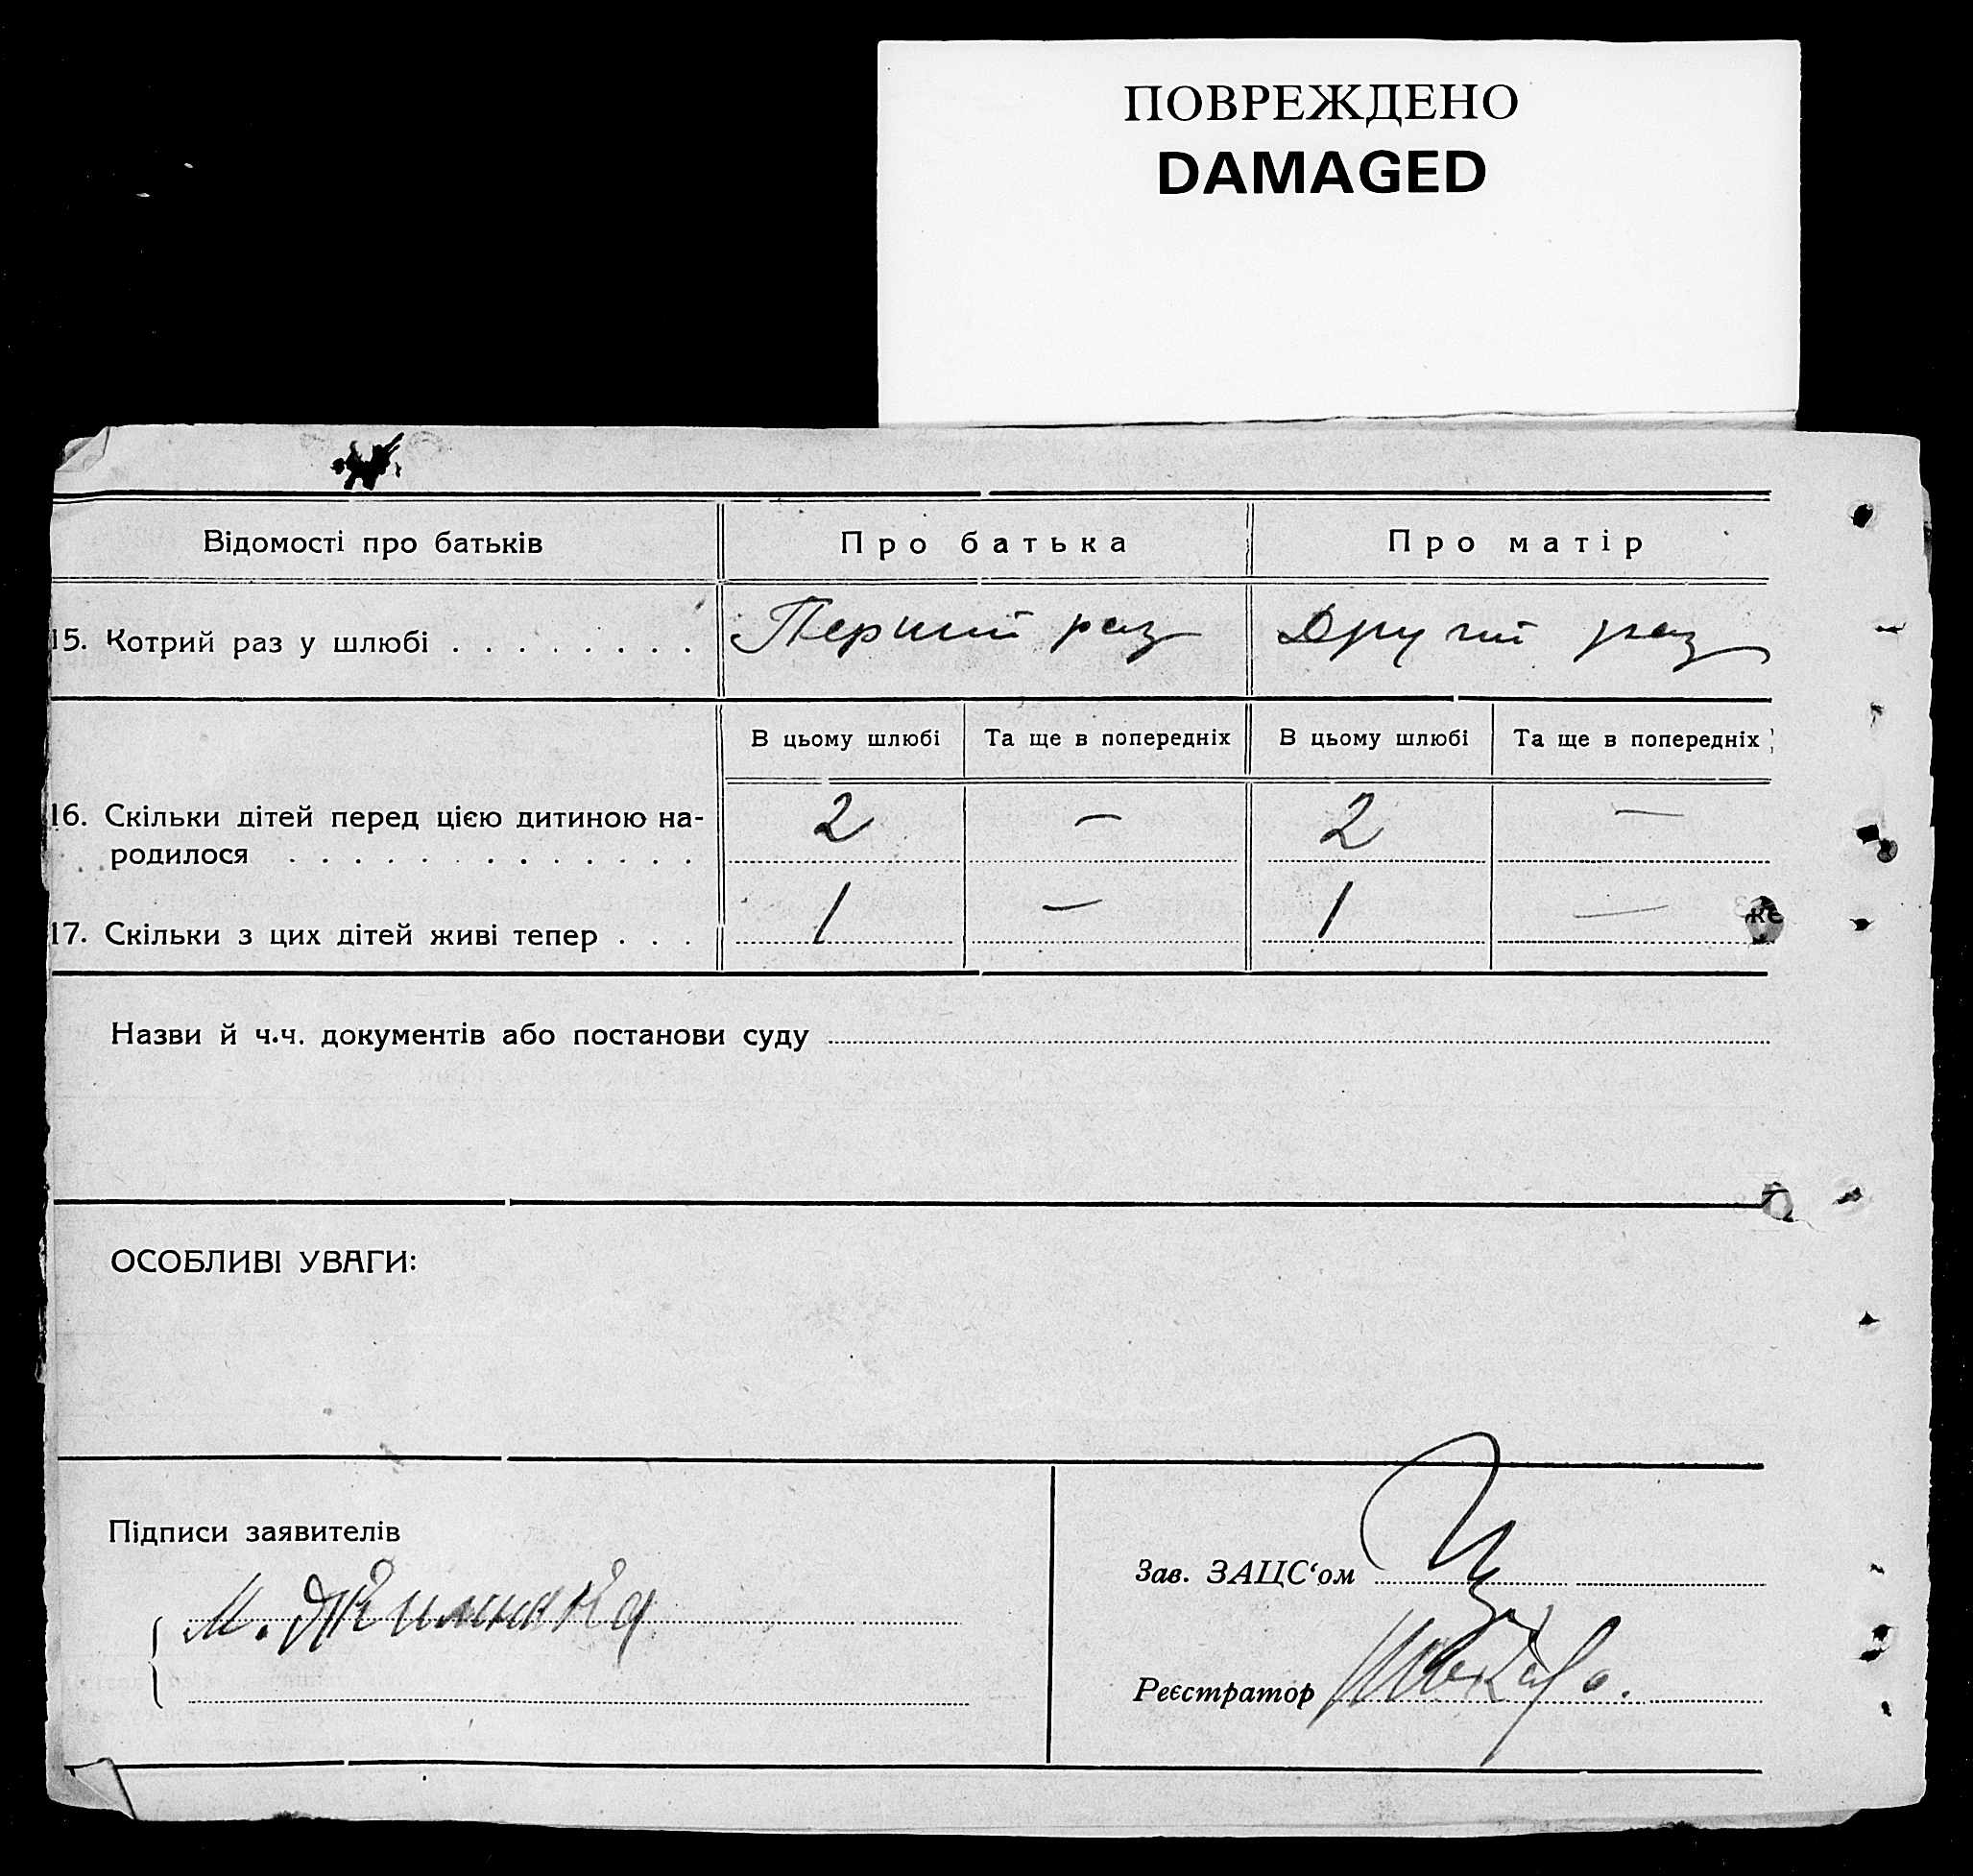 ПОВРЕЖДЕНО
DAMAGED
Відомості про батьків
Про батька
Про матір
15. Котрий раз у шлюбі . . . . . . . .
Перший раз
Другий раз
В цьому шлюбі
Та ще в попередніх
В цьому шлюбі
Та ще в попередніх
16. Скільки дітей перед цією дитиною на-
родилося . . . . . . . . . . . . .
2
—
2
—
17. Скільки з цих дітей живі тепер . . .
1
—
1
—
же
Назви й ч.ч. документів або постанови суду
ОСОБЛИВІ УВАГИ:
Підписи заявителів
М.
Зав. ЗАЦС‘ом
Реєстратор